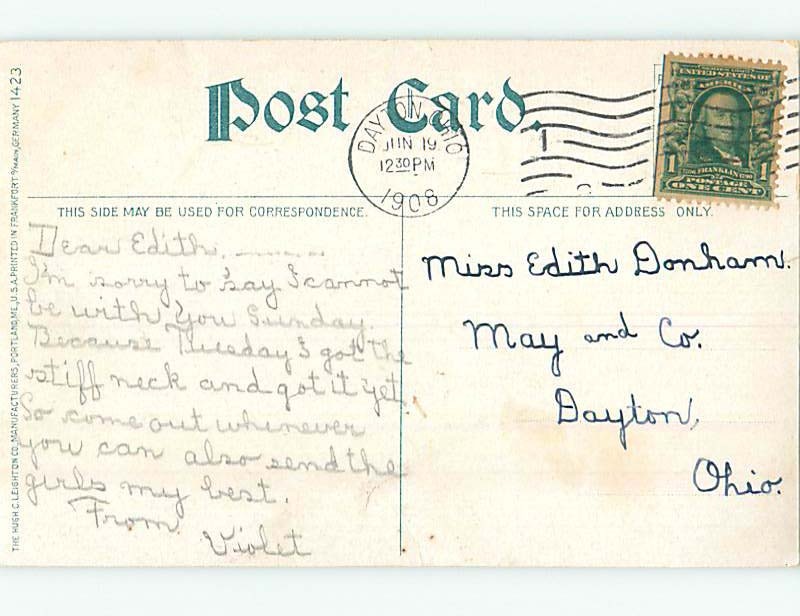 Post Card.
DAYTON, OHIO
JUN 19
12 30 PM
1908
1
UNITED STATES OF
AMERICA
1 FRANKLIN 1790 1
POSTAGE
ONE CENT
THIS SIDE MAY BE USED FOR CORRESPONDENCE.
THIS SPACE FOR ADDRESS ONLY.
Dear Edith.
I'm sorry to say I cannot
be with You Sunday.
Because Tuesday I got the
stiff neck and got it yet
So come out whenever
you can also send the
girls my best.
From
Violet
Miss Edith Donham.
May and Co.
Dayton,
Ohio.
THE HUGH C. LEIGHTON CO., MANUFACTURERS, PORTLAND, ME., U.S.A. PRINTED IN FRANKFORT o/MAIN, GERMANY 1423